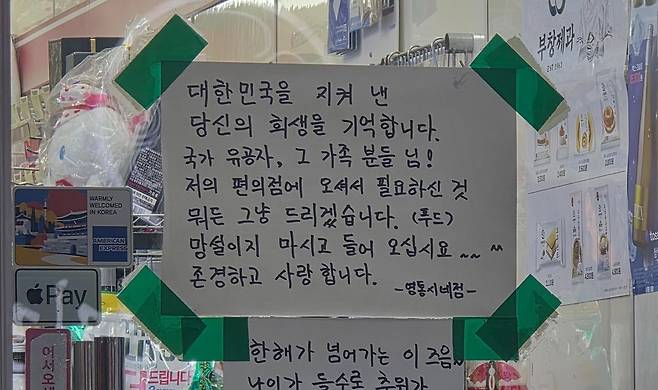 대한민국을 지켜 낸
당신의 희생을 기억합니다.
국가 유공자, 그 가족 분들 님!
저의 편의점에 오셔서 필요하신 것
뭐든 그냥 드리겠습니다. (푸드)
망설이지 마시고 들어 오십시요~~ ^^
존경하고 사랑합니다.
-명동시네점-
한해가 넘어가는 이즈음~
나이가 들수록 추위가
부창제과
WARMLY
WELCOMED
IN KOREA
AMERICAN
EXPRESS
Pay
어서오세
드립니다